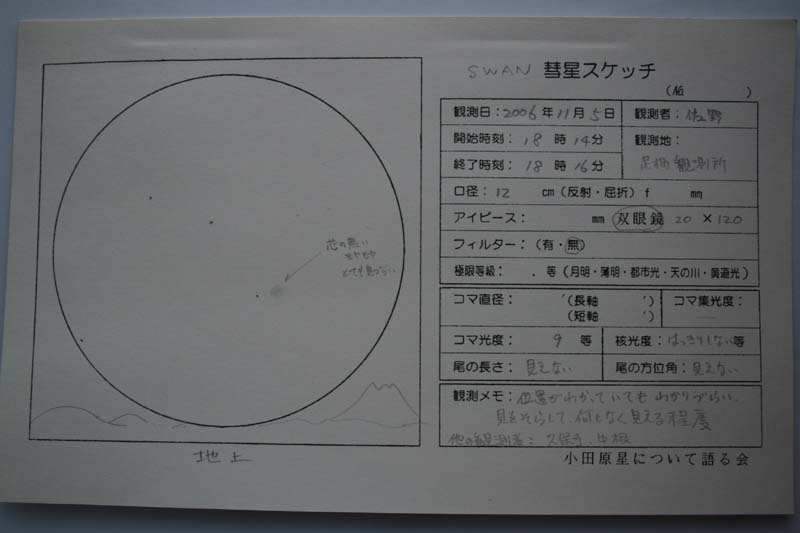 SWAN 彗星スケッチ
(№ )
観測日：2006年11月5日 観測者：佐野
開始時刻：18時14分 観測地：
終了時刻：18時16分 足柄観測所
口径：12 cm（反射・屈折）f mm
アイピース： mm 双眼鏡 20×120
フィルター：（有・無）
極限等級： . 等（月明・薄明・都市光・天の川・黄道光）
コマ直径： ′（長軸 ′） コマ集光度：
′（短軸 ′）
コマ光度： 9 等 核光度：はっきりしない等
尾の長さ：見えない 尾の方位角：見えない
観測メモ：位置がわかっていてもわかりづらい。
目をそらして、何となく見える程度
他の観測者：久保寺、中根
小田原星について語る会
芯の無い
モヤモヤ
とても見づらい
地上